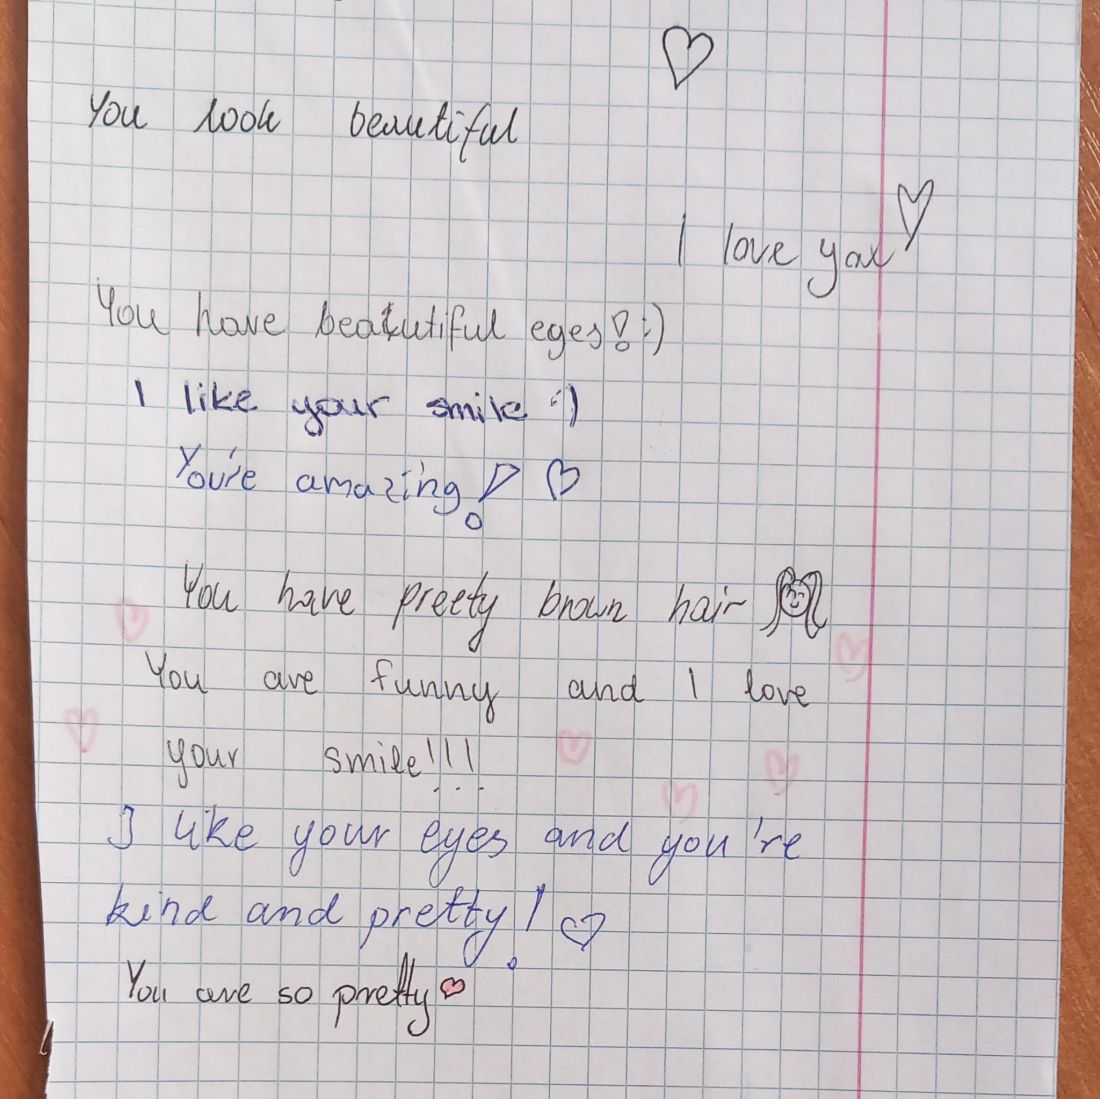 You look beautiful
I love you
You have beatutiful eyes! :)
I like your smile :)
You're amazing!
You have preety brown hair
You are funny and I love
your smile!!!
I like your eyes and you're
kind and pretty!
You are so pretty